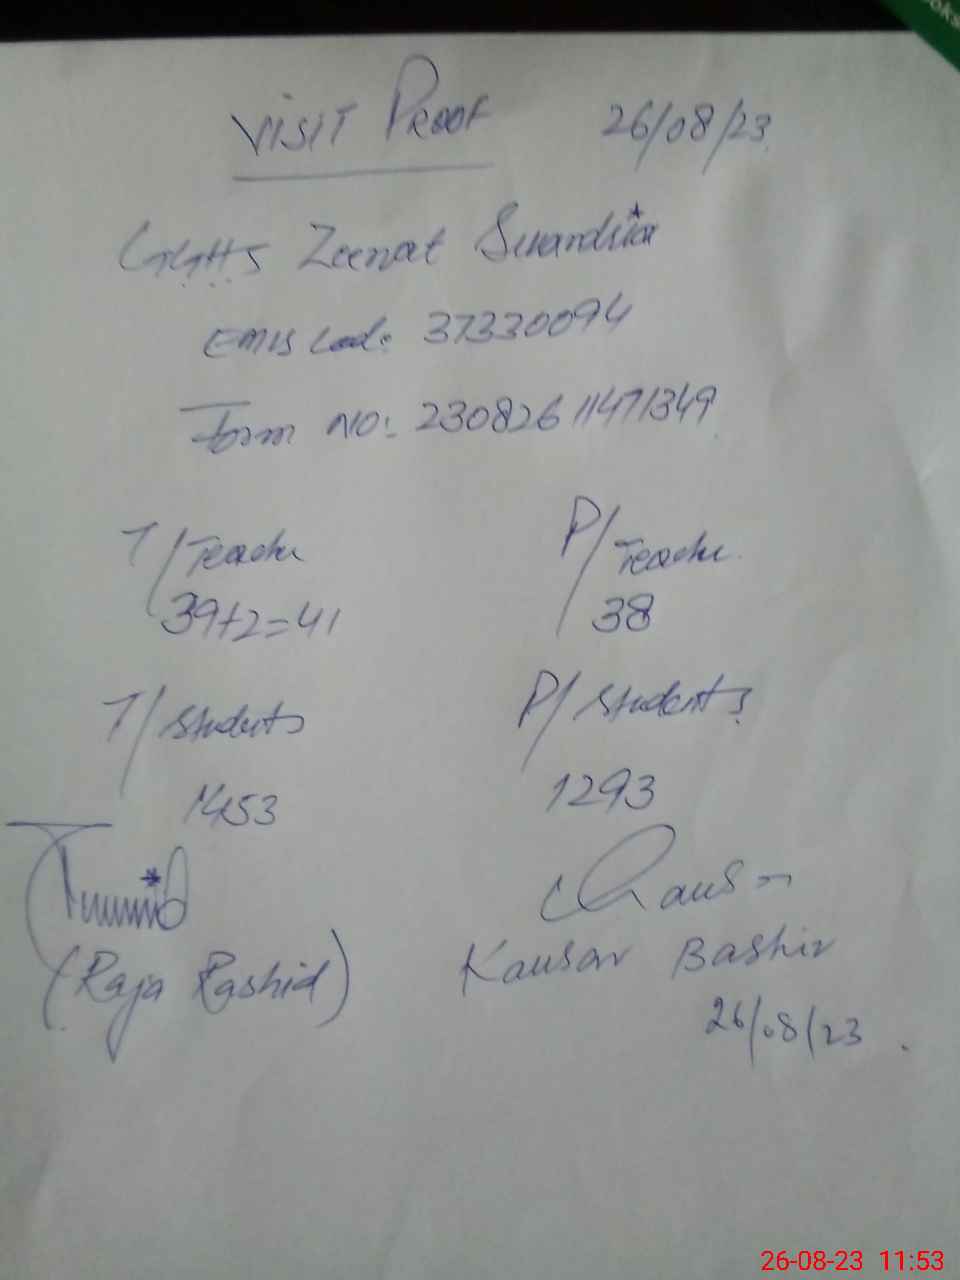 VISIT PROOF 26/08/23
GGHS Zeenat
EMIS Code: 37330094
Form NO: 23082611471349
T/Teacher P/Teacher
39+2=41 38
T/Students P/Students
1453 1293
(Raja Rashid) Kausar Bashir
26/08/23
26-08-23 11:53